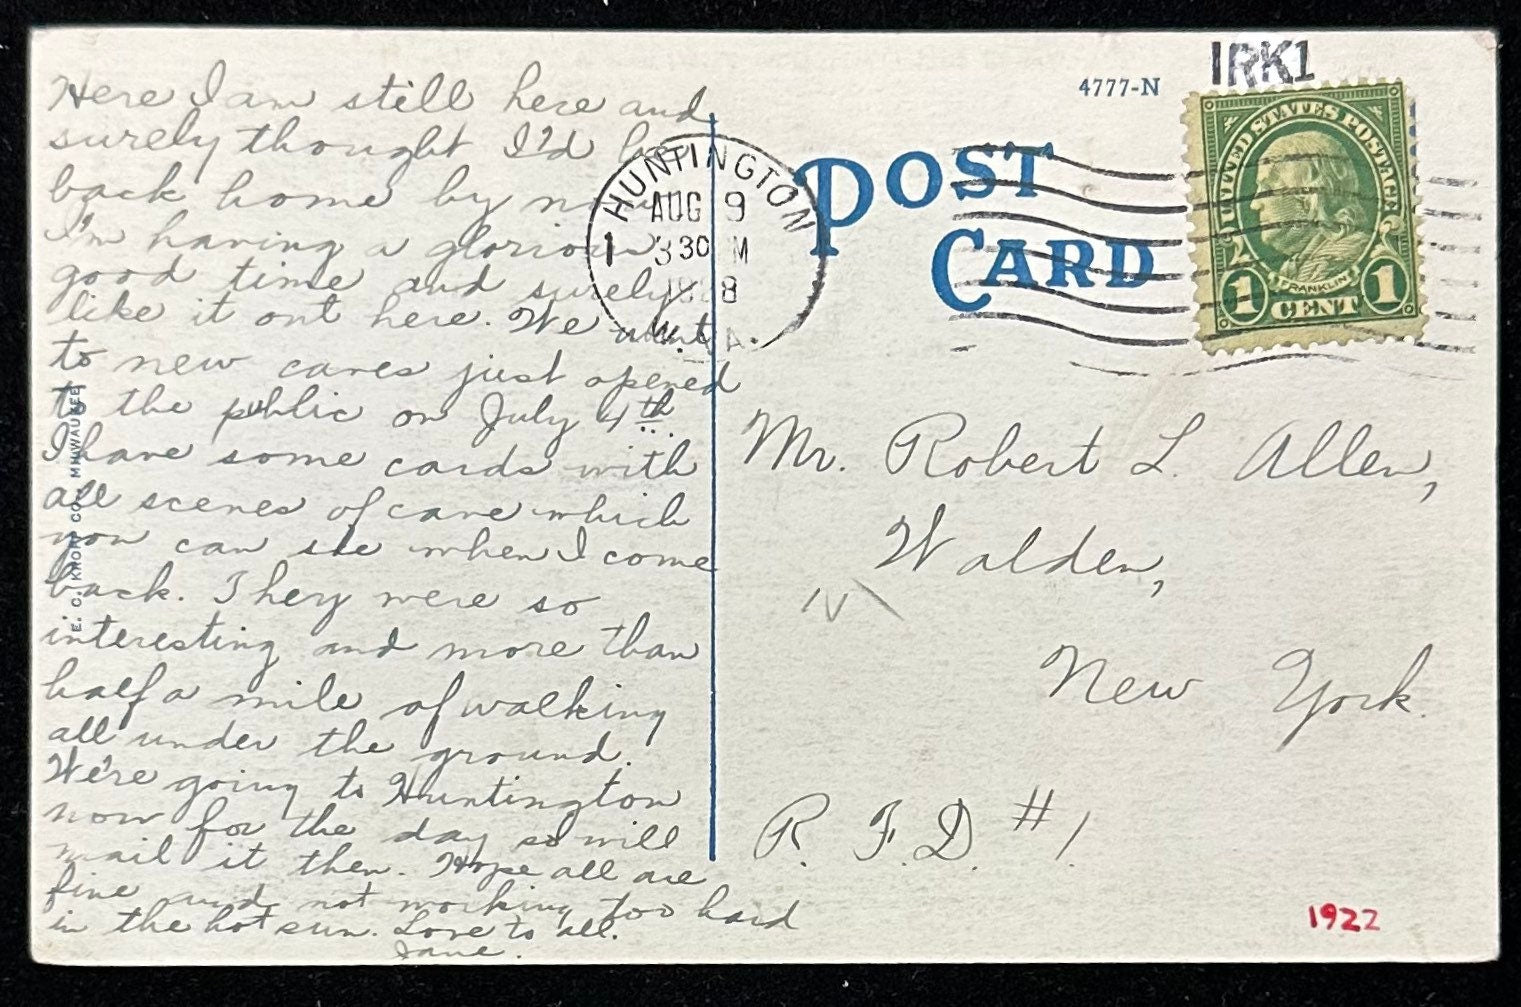 Here I am still here and
surely thought I'd be
back home by now
I'm having a glorious
good time and surely
like it out here. We went
to new caves just opened
to the public on July 4th.
I have some cards with
all scenes of cave which
you can see when I come
back. They were so
interesting and more than
half a mile of walking
all under the ground.
We're going to Huntington
now for the day so will
mail it then. Hope all are
fine and not working too hard
in the hot sun. Love to all.
Jane.
E. C. KROPP CO., MILWAUKEE
HUNTINGTON
AUG 9
1 3 30 M
8
W. VA.
4777-N
IRK1
POST
CARD
UNITED STATES POSTAGE
FRANKLIN
1 CENT 1
Mr. Robert L. Allen,
Walden,
N
New York.
R. F. D. #1.
1922